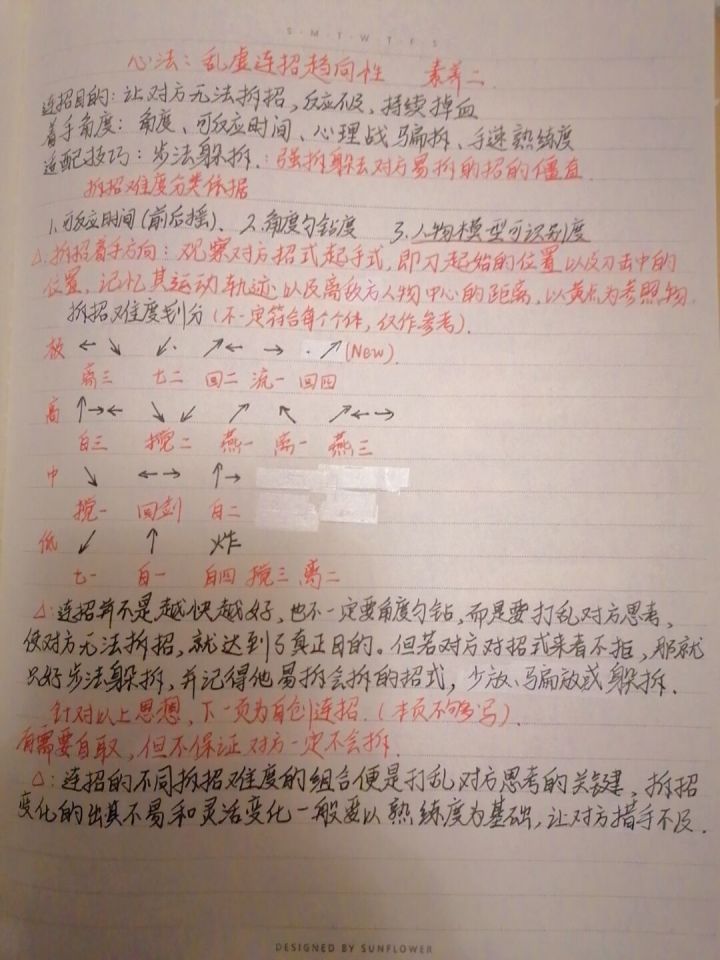 S·M·T·W·T·F·S
心法：乱虚连招趋向性 素养二.
连招目的：让对方无法拆招，反应不及，持续掉血
着手角度：角度、可反应时间、心理战骗拆、手速熟练度
适配技巧：步法躲拆.：强拆躲去对方易拆的招的僵直.
拆招难度分类依据
1.可反应时间(前后摇)、 2.角度勾钻度 3.人物模型可识别度
△：拆招着手方向：观察对方招式起手式，即刀起始的位置以及刀击中的
位置，记忆其运动轨迹以及离敌方人物中心的距离，以黄点为参照物.
拆招难度划分(不一定符合每个个体，仅作参考).
←↘ ↙· ↗← → ·↗(New).
离三 七二 回二 流一 回四
高 ↑→← ↘↙ ↗ ↖ ↗←→
自三 搅二 燕一 离一 燕三
中 ↘ ←→ ↑→
搅一 回剑 自二
低 ↙ ↑ 炸
七一 自一 自四 搅三 离二
△：连招并不是越快越好，也不一定要角度勾钻，而是要打乱对方思考，
使对方无法拆招，就达到了真正目的。但若对方对招式来者不拒，那就
只好步法躲拆，并记得他易拆会拆的招式，少放、骗放或躲拆.
针对以上思想，下一页为自创连招.(本页不够写).
有需要自取，但不保证对方一定不会拆.
△：连招的不同拆招难度的组合便是打乱对方思考的关键，拆招
变化的出其不易和灵活变化一般要以熟练度为基础，让对方措手不及.
DESIGNED BY SUNFLOWER